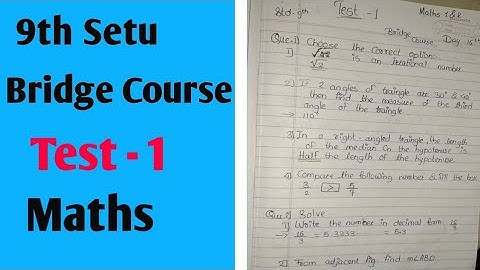 9th Setu
Bridge Course
Test - 1
Maths
Std - 9th Test - 1 Maths
Bridge Course Day
Que-1) Choose the correct option.
1)
√2 is an irrational number.
2) If 2 angles of traingle are 30° & 40°
then find the measure of the third
angle of the traingle
→ 110°
3) In a right-angled traingle, the length
of the median on the hypotenuse is
Half the length of the hypotenuse.
4) Compare the following number & fill the box
3/2 [>] 5/7
Que-2) Solve
1) Write the number in decimal form 16/3
→ 16/3 = 5.3333 = 5.3
2) From adjacent fig find m∠ABD.